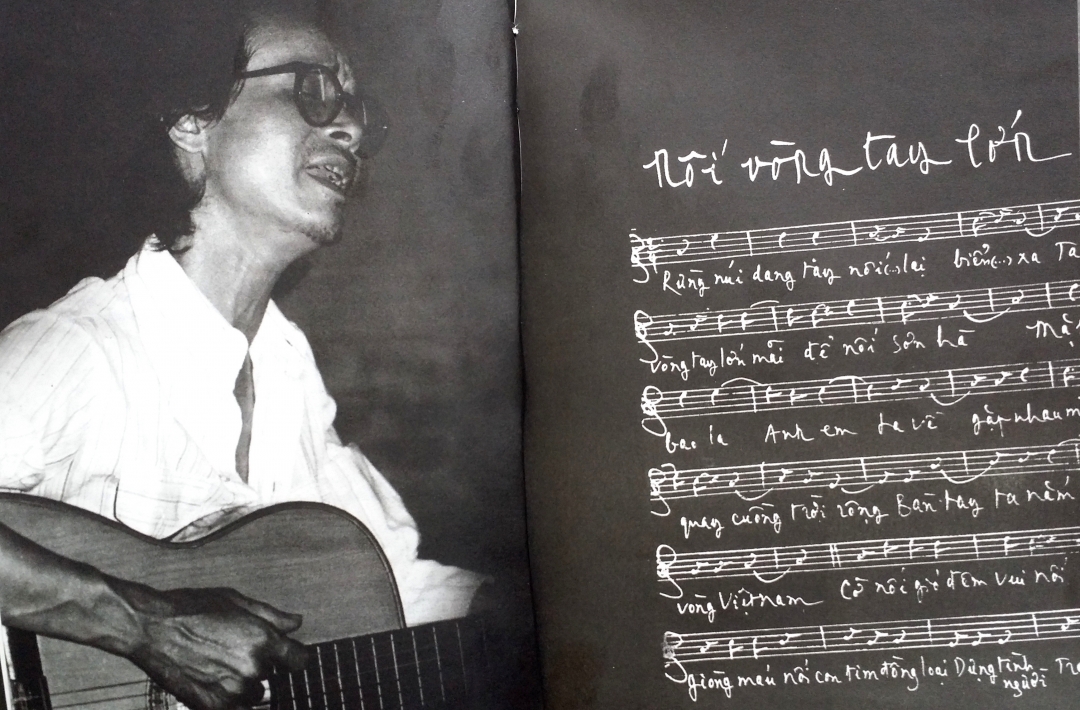 nối vòng tay lớn
Rừng núi dang tay nối(...)lại biển(...)xa Ta
vòng tay lớn mãi để nối sơn hà Mặ
bao la Anh em ta về gặp nhau m
quay cuồng trời rộng Bàn tay ta nắm
vòng Việt nam Cờ nối gió đêm vui nối
giòng máu nối con tim đồng loại Dựng tình người Tro